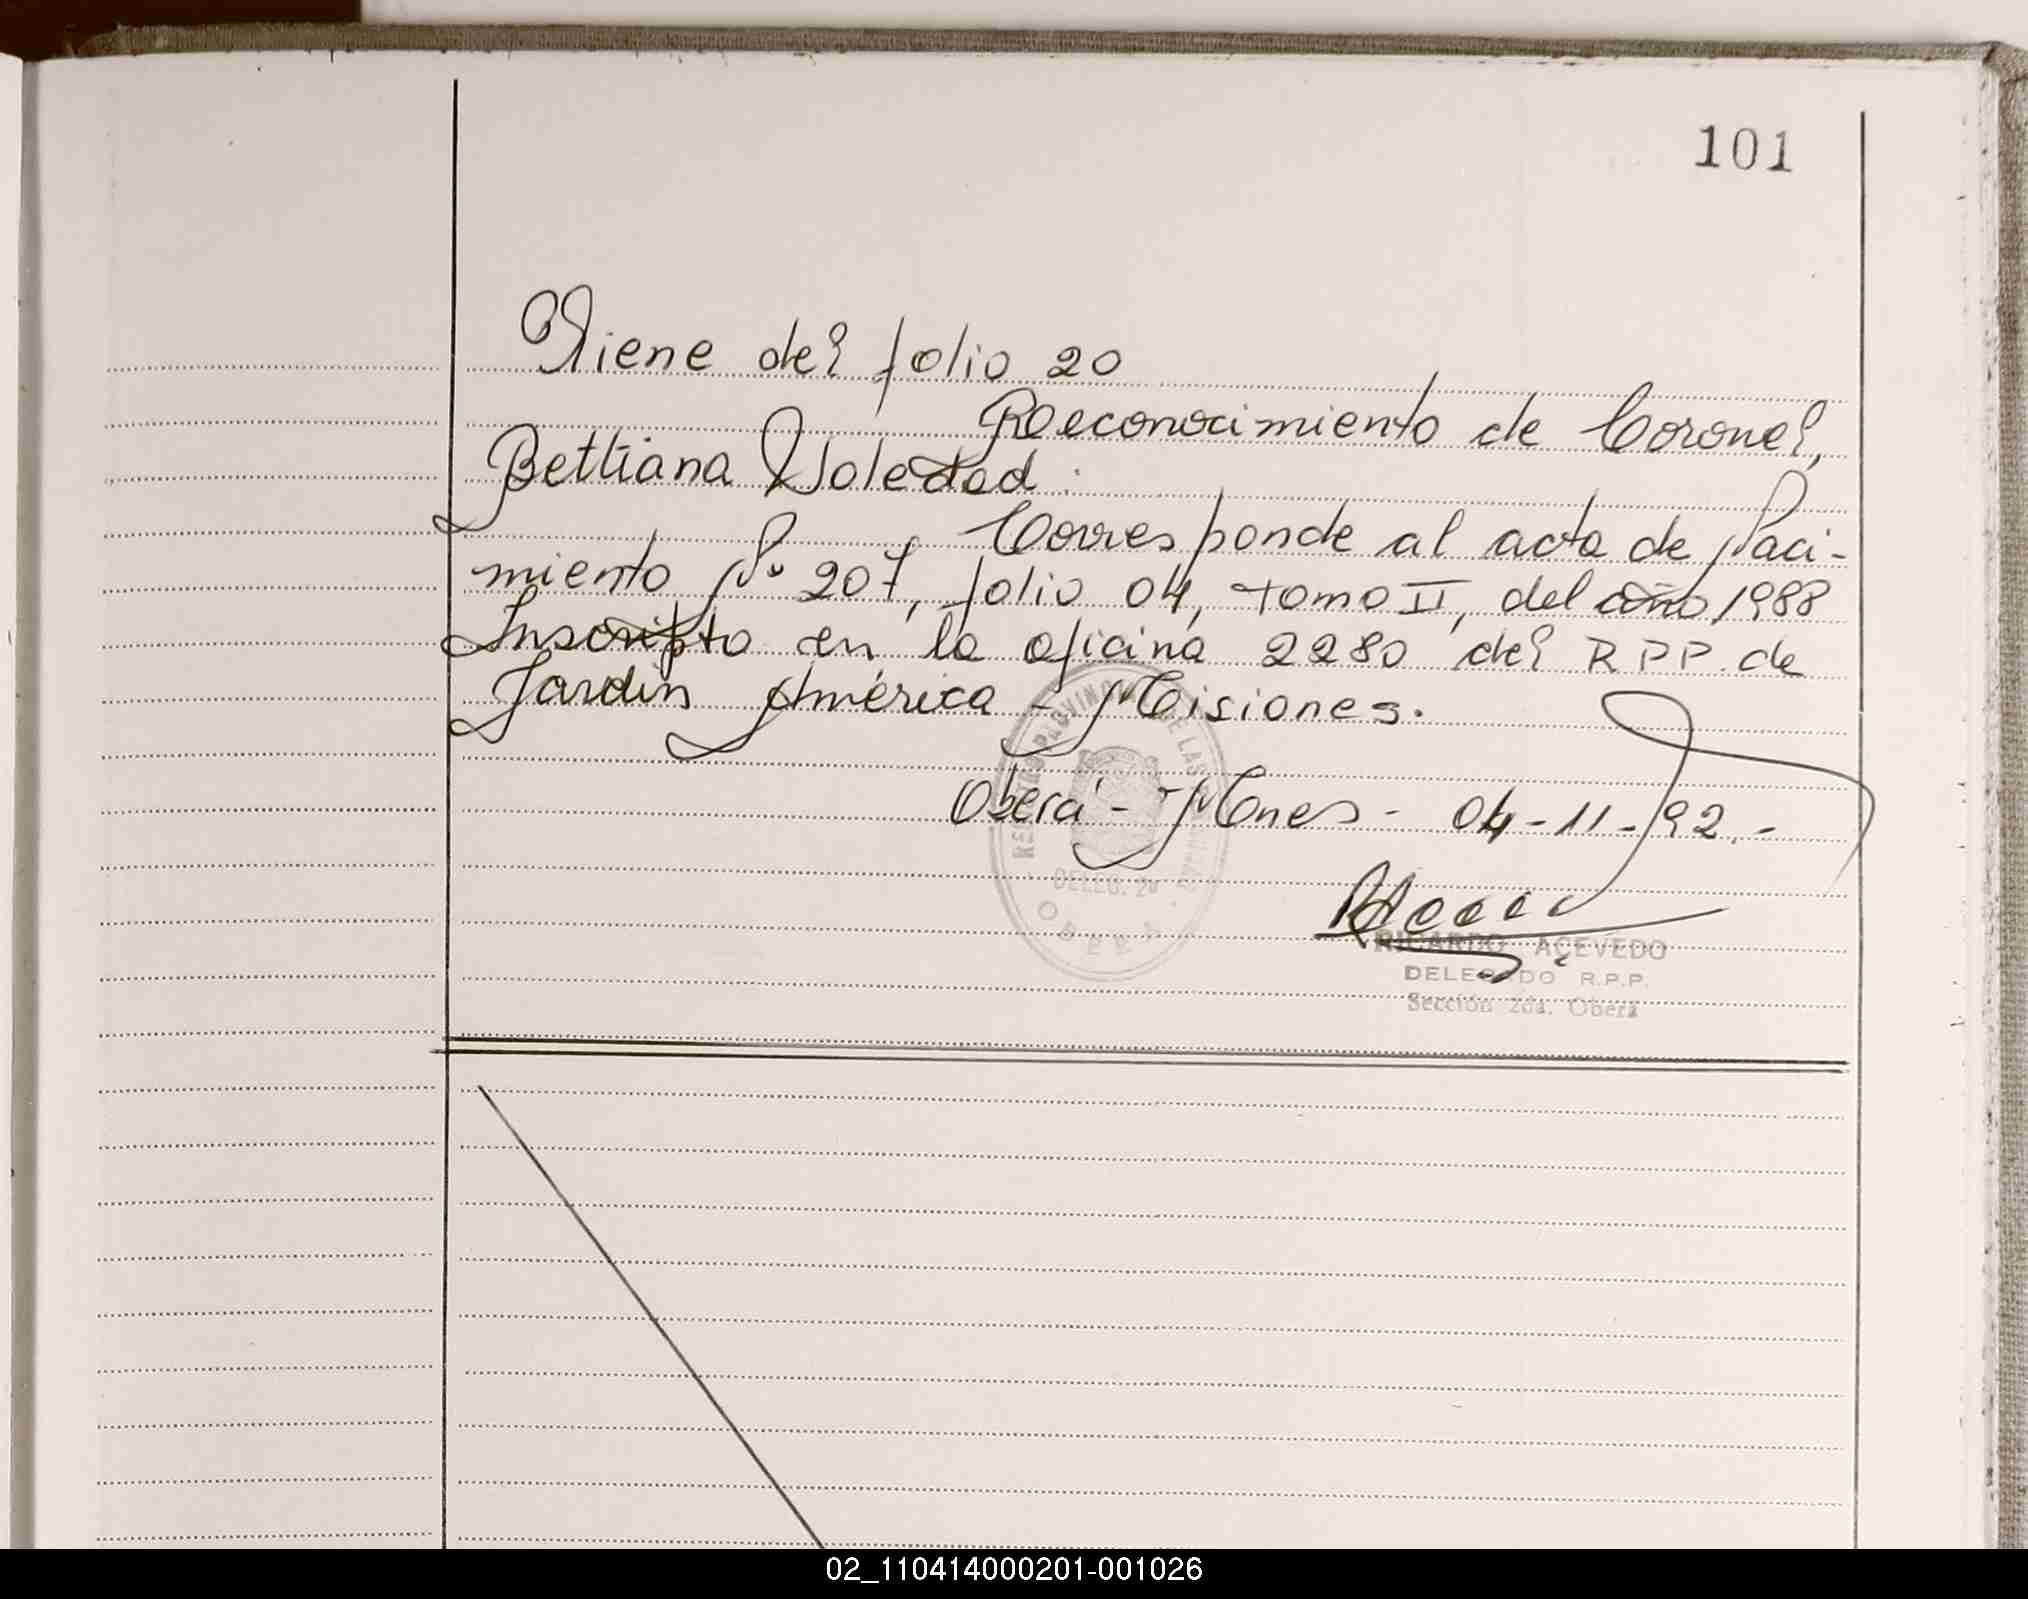 101
Viene del folio 20
Reconocimiento de Coronel,
Bettiana Soledad.
Corresponde al acta de Naci-
miento Nº 207, folio 04, tomo II, del año 1988
Inscripto en la oficina 2280 del R P P. de
Jardín América - Misiones.
Oberá - Mnes - 04-11-92.-
REGISTRO PROVINCIAL DE LAS
DELEG. 2ª
OBERA
RICARDO ACEVEDO
DELEGADO R.P.P.
Sección 2da. Oberá
02_110414000201-001026